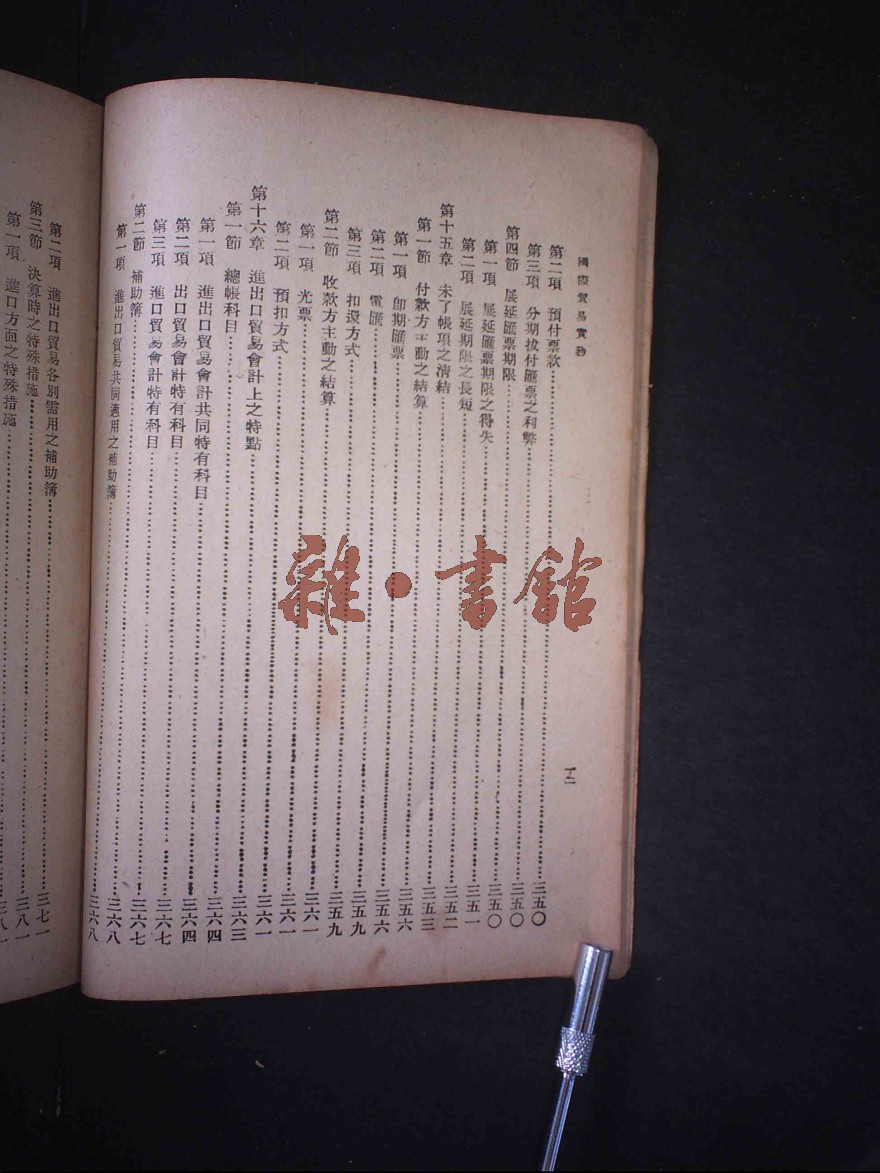 國際貿易實務
一二
第二項 預付票款……三五〇
第三項 分期拔付匯票之利弊……三五〇
第四節 展延匯票期限……三五〇
第一項 展延匯票期限之得失……三五一
第二項 展延期限之長短……三五二
第十五章 未了帳項之清結……三五三
第一節 付款方主動之結算……三五六
第一項 即期匯票……三五六
第二項 電匯……三五九
第三項 扣還方式……三五九
第二節 收款方主動之結算……三六一
第一項 光票……三六一
第二項 預扣方式……三六一
第十六章 進出口貿易會計上之特點……三六三
第一節 總帳科目……三六四
第一項 進出口貿易會計共同特有科目……三六四
第二項 出口貿易會計特有科目……三六七
第三項 進口貿易會計特有科目……三六七
第二節 補助簿……三六八
第一項 進出口貿易共同適用之補助簿……三六八
第二項 進出口貿易各別需用之補助簿……三七一
第三節 決算時之特殊措施……三八一
第一項 進口方面之特殊措施……三八一
雜·書館